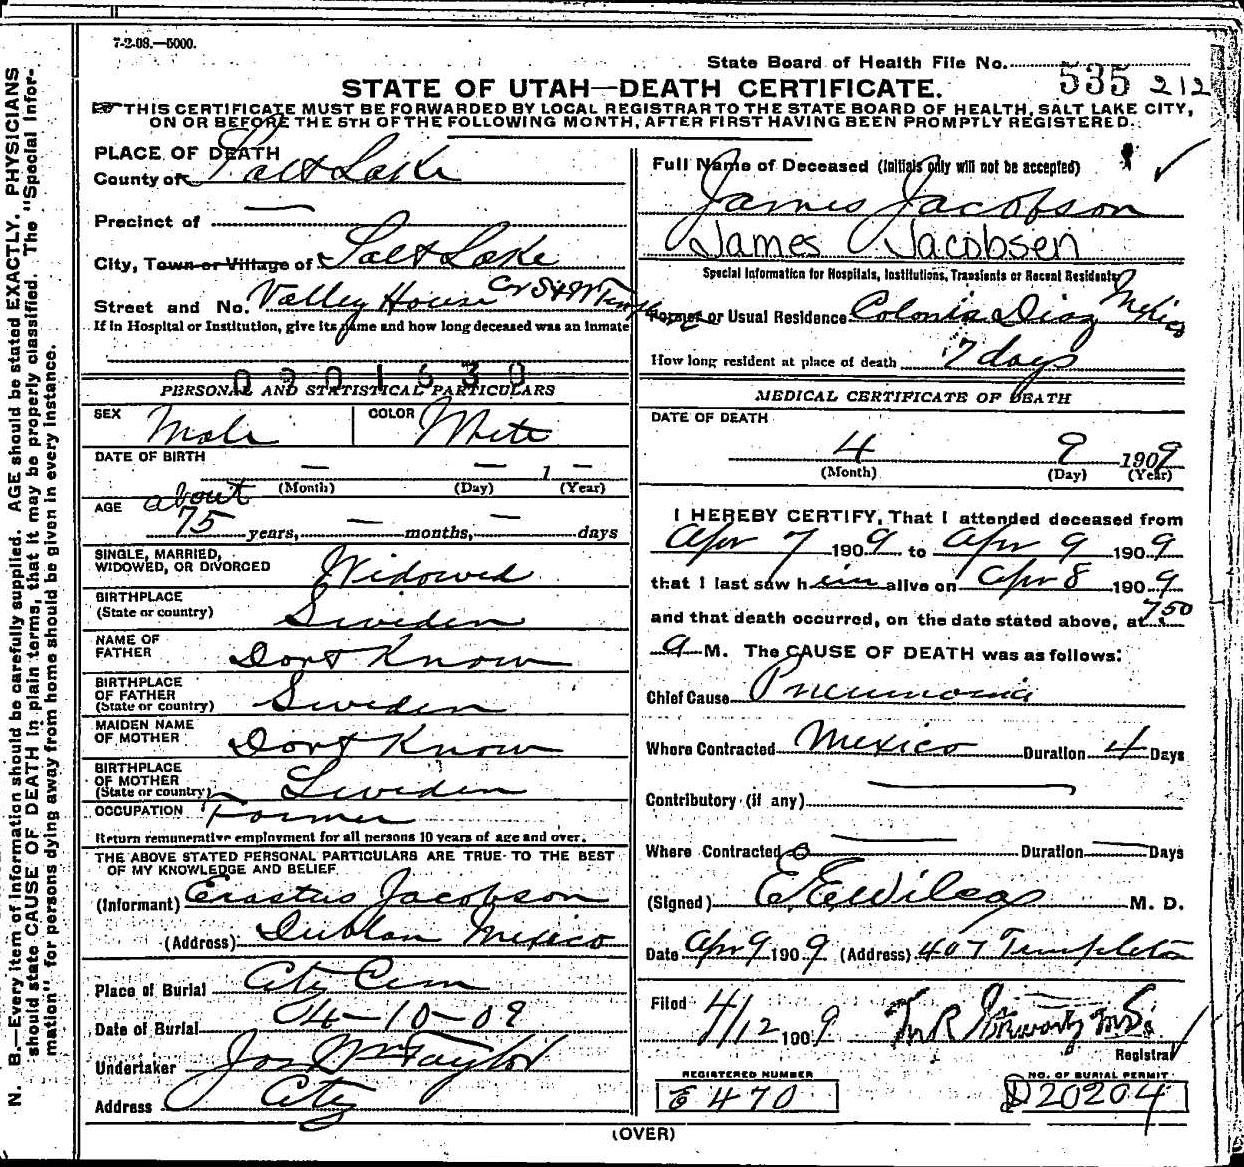 7-2-08.—5000.
State Board of Health File No. 535 212
STATE OF UTAH—DEATH CERTIFICATE.
THIS CERTIFICATE MUST BE FORWARDED BY LOCAL REGISTRAR TO THE STATE BOARD OF HEALTH, SALT LAKE CITY,
ON OR BEFORE THE 5TH OF THE FOLLOWING MONTH, AFTER FIRST HAVING BEEN PROMPTLY REGISTERED.
N. B.—Every item of information should be carefully supplied. AGE should be stated EXACTLY. PHYSICIANS
should state CAUSE OF DEATH in plain terms, that it may be properly classified. The "Special Infor-
mation" for persons dying away from home should be given in every instance.
PLACE OF DEATH
County of Salt Lake
Precinct of —
City, Town or Village of Salt Lake
Street and No. Valley House Cor So & W Temple
If in Hospital or Institution, give its name and how long deceased was an inmate
0901630
PERSONAL AND STATISTICAL PARTICULARS
SEX Male COLOR White
DATE OF BIRTH
— — 1 —
(Month) (Day) (Year)
AGE about
75 years, — months, — days
SINGLE, MARRIED,
WIDOWED, OR DIVORCED Widowed
BIRTHPLACE
(State or country) Sweden
NAME OF
FATHER Dont Know
BIRTHPLACE
OF FATHER
(State or country) Sweden
MAIDEN NAME
OF MOTHER Dont Know
BIRTHPLACE
OF MOTHER
(State or country) Sweden
OCCUPATION Farmer
Return remunerative employment for all persons 10 years of age and over.
THE ABOVE STATED PERSONAL PARTICULARS ARE TRUE TO THE BEST
OF MY KNOWLEDGE AND BELIEF
(Informant) Erastus Jacobson
(Address) Dublan Mexico
Place of Burial City Cem
Date of Burial 04-10-09
Undertaker Jos Wm Taylor
Address City
Full Name of Deceased (Initials only will not be accepted)
James Jacobson
James Jacobsen
Special Information for Hospitals, Institutions, Transients or Recent Residents
Former or Usual Residence Colonia Diaz Mexico
How long resident at place of death 7 days
MEDICAL CERTIFICATE OF DEATH
DATE OF DEATH
4 9 1909
(Month) (Day) (Year)
I HEREBY CERTIFY, That I attended deceased from
Apr 7 1909 to Apr 9 1909
that I last saw him alive on Apr 8 1909
and that death occurred, on the date stated above, at 7 50
a M. The CAUSE OF DEATH was as follows:
Chief Cause Pneumonia
Where Contracted Mexico Duration 4 Days
Contributory (if any) —
Where Contracted — Duration — Days
(Signed) M. D.
Date Apr 9 1909 (Address) 407 Templeton
Filed 4/12 1909
Registrar
REGISTERED NUMBER
470
NO. OF BURIAL PERMIT
D20204
(OVER)